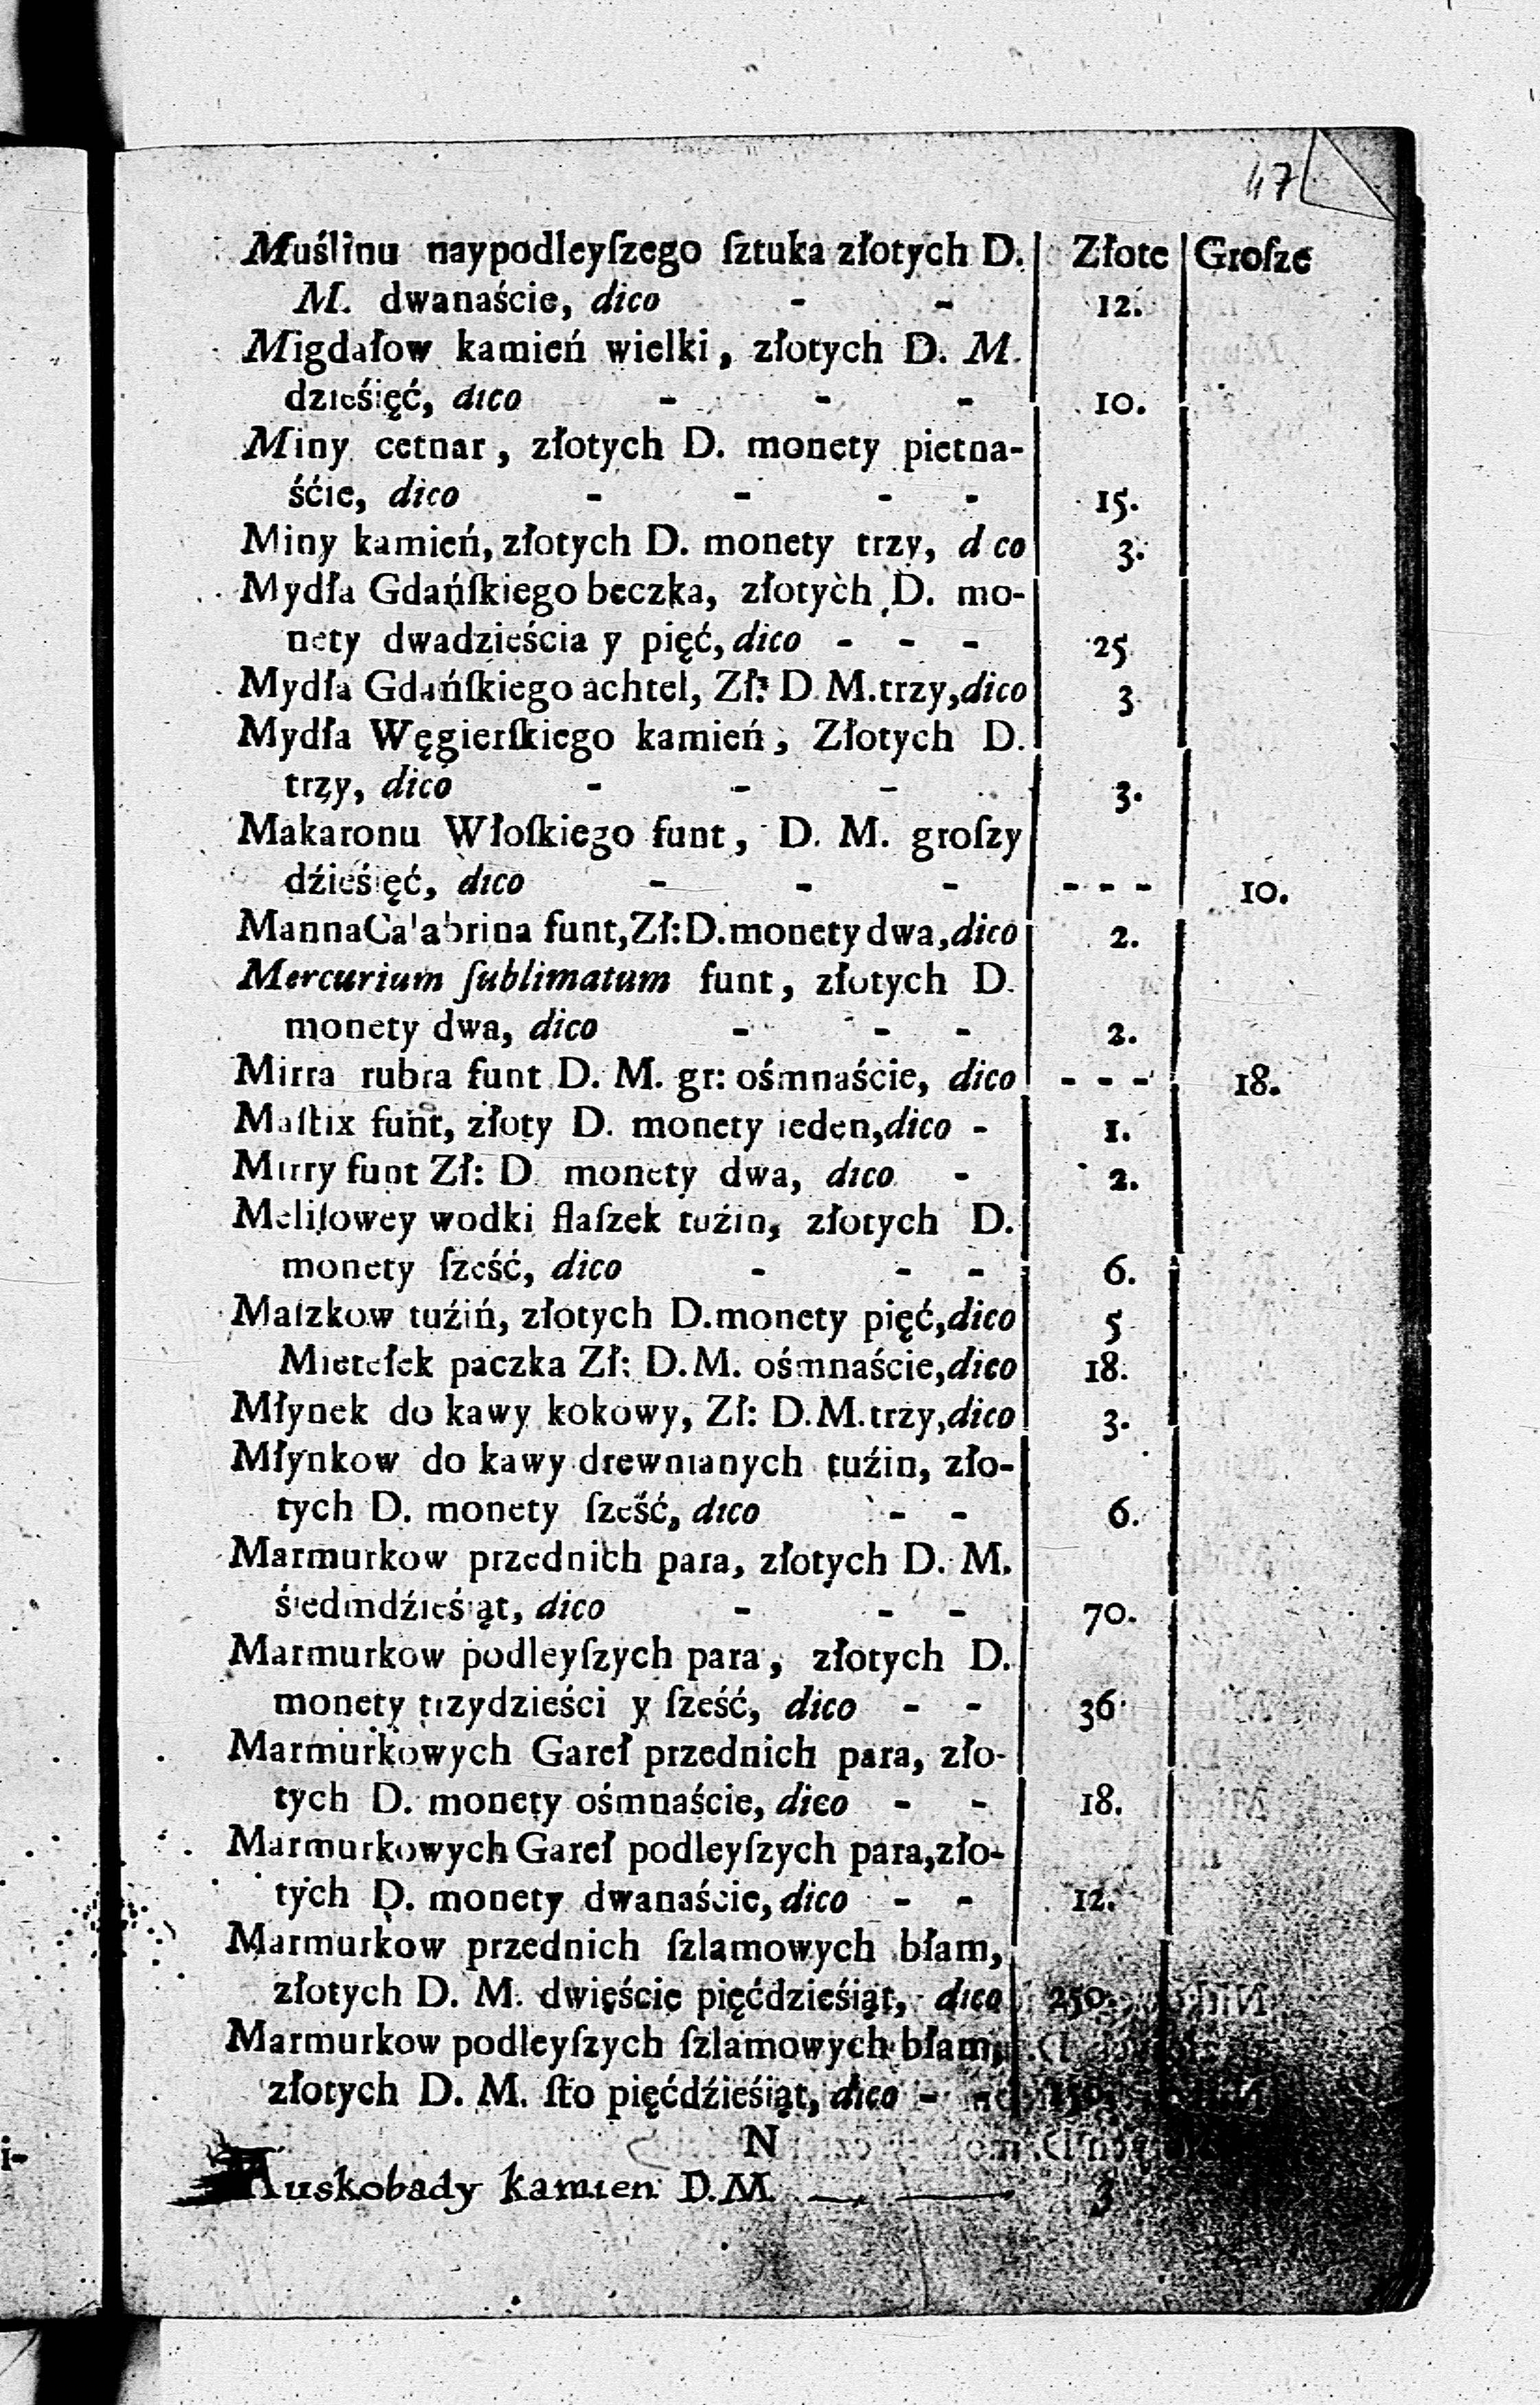 47
Muślinu naypodleyſzego ſztuka złotych D. Złote Groſze
M. dwanaście, dico - - 12.
Migdałow kamień wielki, złotych D. M.
dzieśięć, dico - - - 10.
Miny cetnar, złotych D. monety pietna-
śćie, dico - - - - 15.
Miny kamień, złotych D. monety trzy, d co 3.
Mydła Gdańſkiego beczka, złotych D. mo-
nety dwadzieścia y pięć, dico - - - 25
Mydła Gdańſkiego achtel, Zł: D M. trzy, dico 3
Mydła Węgierſkiego kamień, Złotych D.
trzy, dico - - - 3.
Makaronu Włoſkiego funt, D. M. groſzy
dźieśięć, dico - - - - - - 10.
Manna Calabrina funt, Zł: D. monety dwa, dico 2.
Mercurium ſublimatum funt, złotych D.
monety dwa, dico - - - 2.
Mirra rubra funt D. M. gr: ośmnaście, dico - - - 18.
Maſtix funt, złoty D. monety ieden, dico - 1.
Mirry funt Zł: D monety dwa, dico - 2.
Meliſowey wodki flaſzek tuźin, złotych D.
monety ſześć, dico - - - 6.
Maſzkow tuźiń, złotych D. monety pięć, dico 5
Mietełek paczka Zł: D. M. ośmnaście, dico 18.
Młynek do kawy kokowy, Zł: D. M. trzy, dico 3.
Młynkow do kawy drewnianych tuźin, zło-
tych D. monety ſześć, dico - - 6.
Marmurkow przednich para, złotych D. M.
śiedmdźieśiąt, dico - - - 70.
Marmurkow podleyſzych para, złotych D.
monety trzydzieści y ſześć, dico - - 36
Marmurkowych Gareł przednich para, zło-
tych D. monety ośmnaście, dico - - 18.
Marmurkowych Gareł podleyſzych para, zło-
tych D. monety dwanaście, dico - - 12.
Marmurkow przednich ſzlamowych błam,
złotych D. M. dwięście pięćdzieśiąt, dico 250.
Marmurkow podleyſzych ſzlamowych błam,
złotych D. M. ſto pięćdźieśiąt, dico - - 150.
N
Muskobady kamien D. M. — — 3
i-